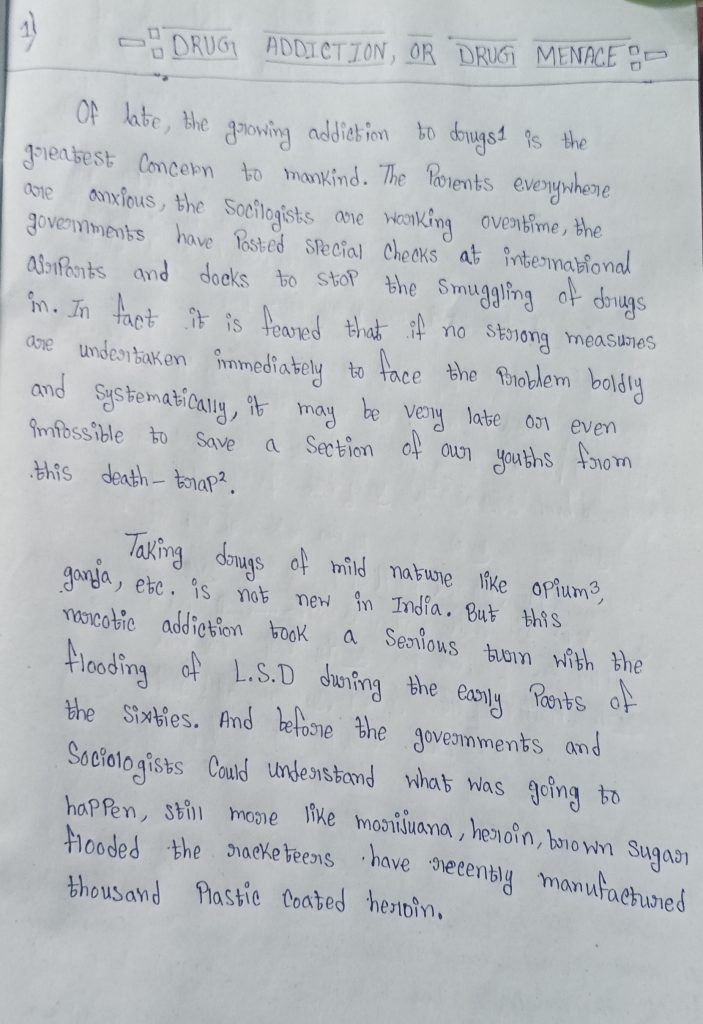 1)
DRUG ADDICTION, OR DRUG MENACE
Of late, the growing addiction to drugs1 is the
greatest Concern to mankind. The Parents everywhere
are anxious, the Socilogists are working overtime, the
governments have Posted Special Checks at international
airports and docks to stop the smuggling of drugs
in. In fact it is feared that if no strong measures
are undertaken immediately to face the Problem boldly
and systematically, it may be very late or even
impossible to save a Section of our youths from
this death-trap2.
Taking drugs of mild nature like opium3,
ganja, etc. is not new in India. But this
narcotic addiction took a Serious turn with the
flooding of L.S.D during the early Parts of
the Sixties. And before the governments and
Sociologists Could understand what was going to
happen, still more like marijuana, heroin, brown sugar
flooded the racketeers have recently manufactured
thousand Plastic Coated heroin.